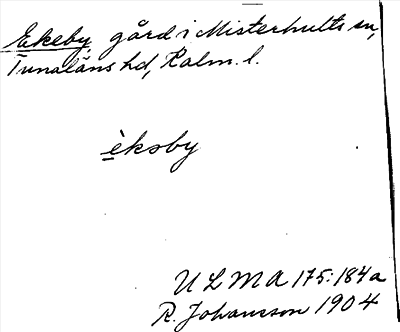 Ekeby, gård i Misterhults sn,
Tunaläns hd, Kalm. l.
èksby
ULMA 175:184a
R. Johansson 1904